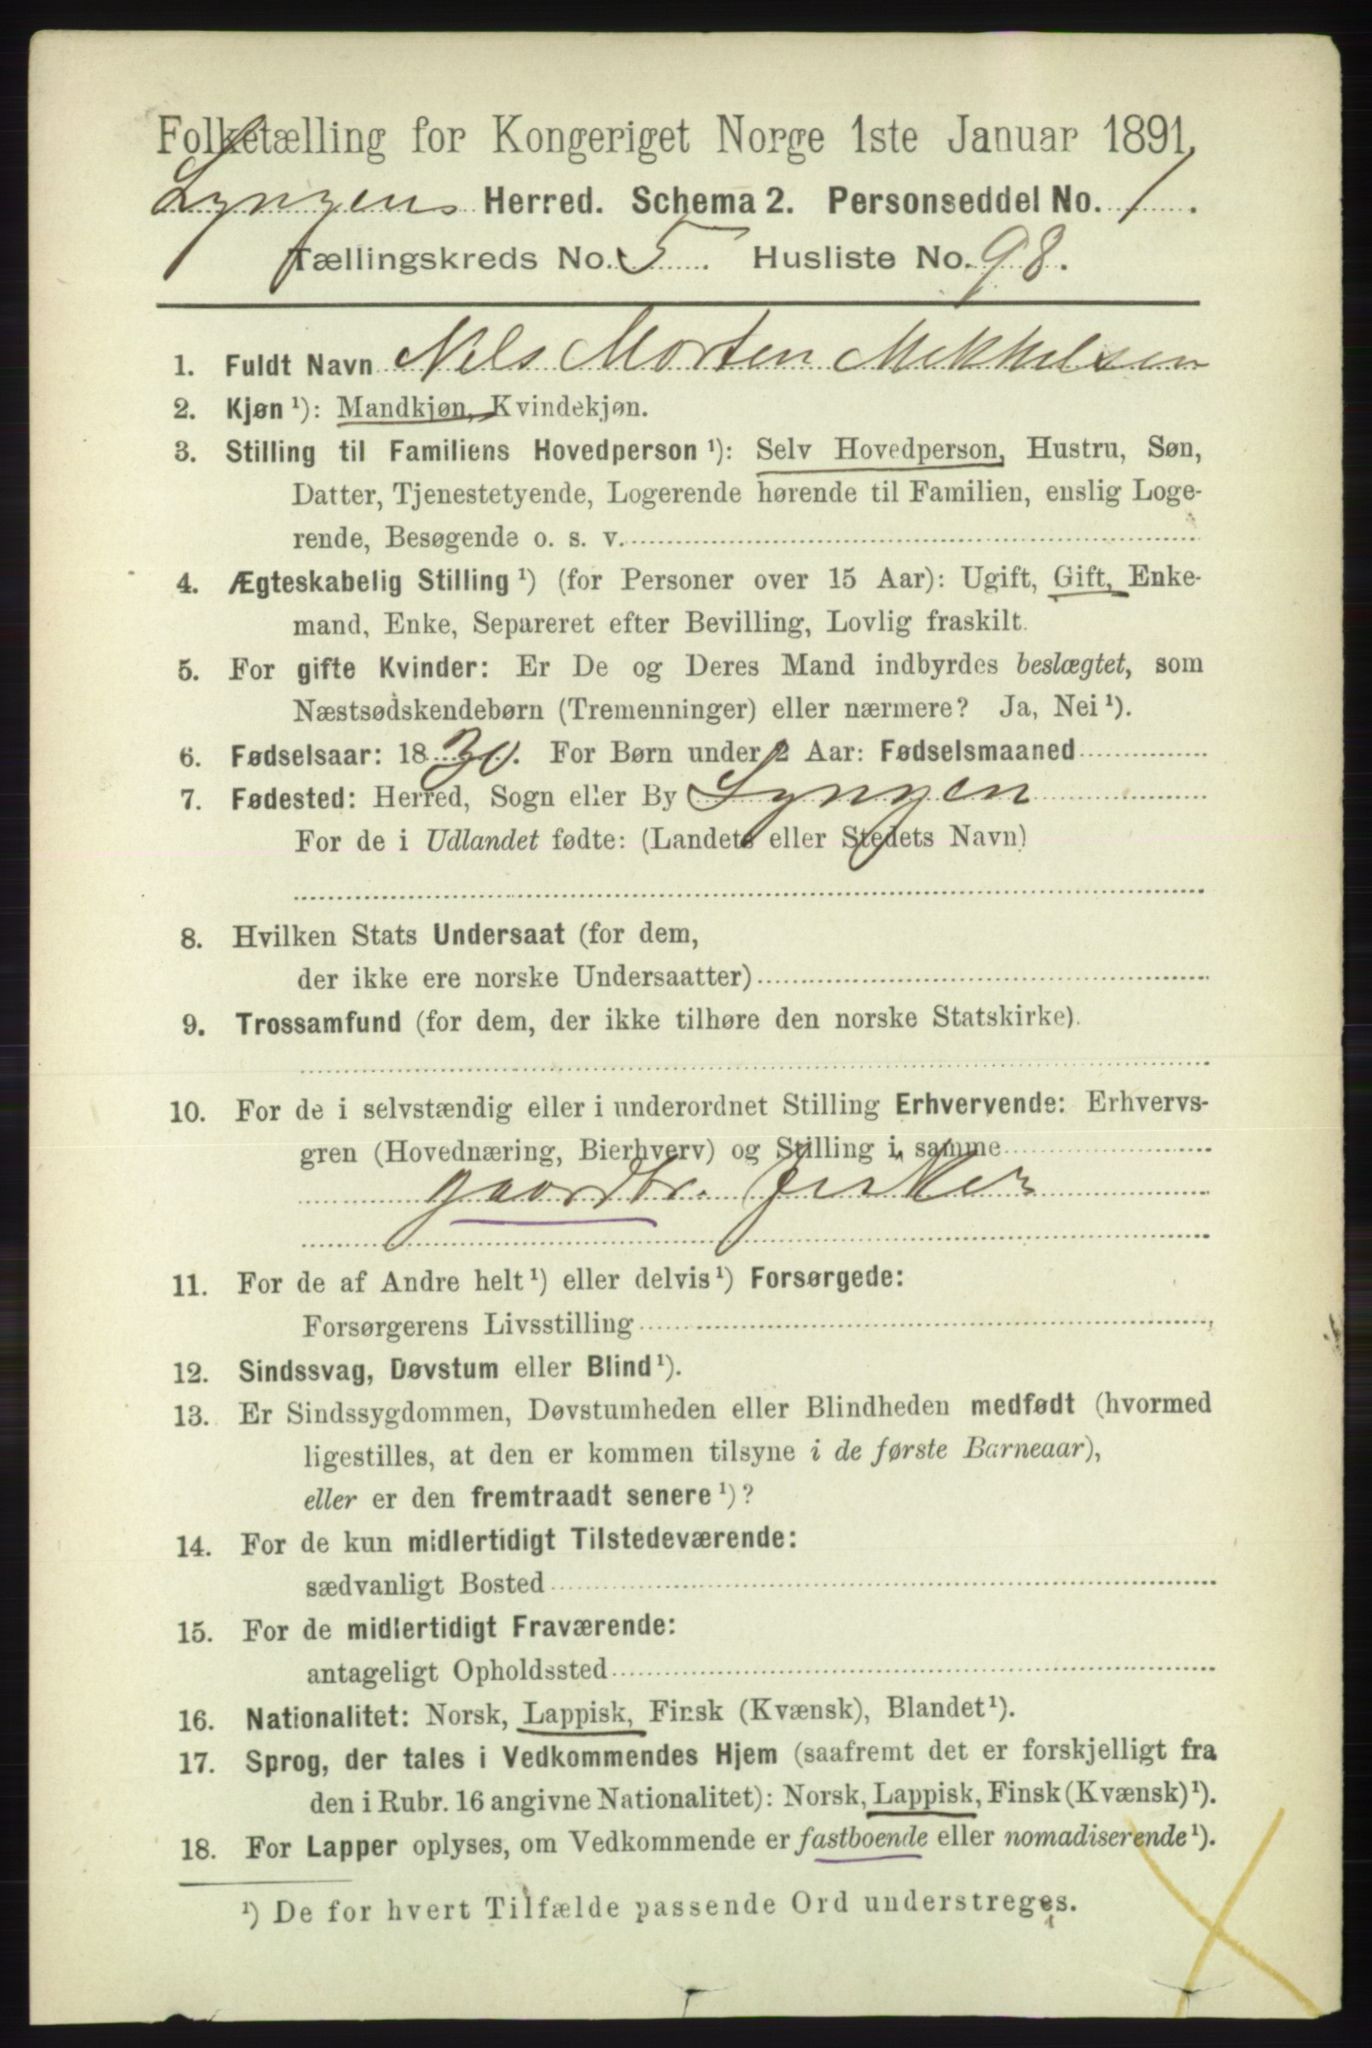 Folketælling for Kongeriget Norge 1ste Januar 1891.
Lyngens Herred. Schema 2. Personseddel No. 1.
Tællingskreds No. 5. Husliste No. 98.
1. Fuldt Navn Nils Morten Mekkelsen
2. Kjøn ¹): Mandkjøn, Kvindekjøn.
3. Stilling til Familiens Hovedperson ¹): Selv Hovedperson, Hustru, Søn,
Datter, Tjenestetyende, Logerende hørende til Familien, enslig Loge-
rende, Besøgende o. s. v.
4. Ægteskabelig Stilling ¹) (for Personer over 15 Aar): Ugift, Gift, Enke-
mand, Enke, Separeret efter Bevilling, Lovlig fraskilt.
5. For gifte Kvinder: Er De og Deres Mand indbyrdes beslægtet, som
Næstsødskendebørn (Tremenninger) eller nærmere? Ja, Nei ¹).
6. Fødselsaar: 1830. For Børn under 2 Aar: Fødselsmaaned
7. Fødested: Herred, Sogn eller By Lyngen
For de i Udlandet fødte: (Landets eller Stedets Navn)
8. Hvilken Stats Undersaat (for dem,
der ikke ere norske Undersaatter)
9. Trossamfund (for dem, der ikke tilhøre den norske Statskirke).
10. For de i selvstændig eller i underordnet Stilling Erhvervende: Erhvervs-
gren (Hovednæring, Bierhverv) og Stilling i samme
gaardbr. fisker
11. For de af Andre helt ¹) eller delvis ¹) Forsørgede:
Forsørgerens Livsstilling
12. Sindssvag, Døvstum eller Blind ¹).
13. Er Sindssygdommen, Døvstumheden eller Blindheden medfødt (hvormed
ligestilles, at den er kommen tilsyne i de første Barneaar),
eller er den fremtraadt senere ¹)?
14. For de kun midlertidigt Tilstedeværende:
sædvanligt Bosted
15. For de midlertidigt Fraværende:
antageligt Opholdssted
16. Nationalitet: Norsk, Lappisk, Finsk (Kvænsk), Blandet ¹).
17. Sprog, der tales i Vedkommendes Hjem (saafremt det er forskjelligt fra
den i Rubr. 16 angivne Nationalitet): Norsk, Lappisk, Finsk (Kvænsk) ¹).
18. For Lapper oplyses, om Vedkommende er fastboende eller nomadiserende ¹).
¹) De for hvert Tilfælde passende Ord understreges.